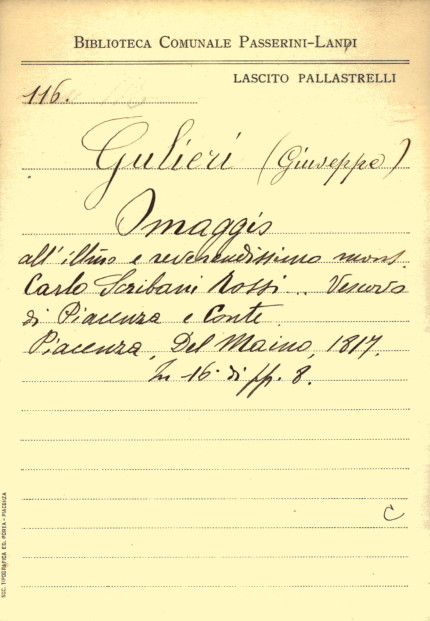 BIBLIOTECA COMUNALE PASSERINI-LANDI
LASCITO PALLASTRELLI
116.
Gulieri (Giuseppe)
Omaggio
all' illmo e reverendissimo mons.
Carlo Scribani Rossi .. Vescovo
di Piacenza e Conte
Piacenza, Del Maino, 1817.
In 16. di pp. 8.
C
SOC. TIPOGRAFICA ED. PORTA - PIACENZA